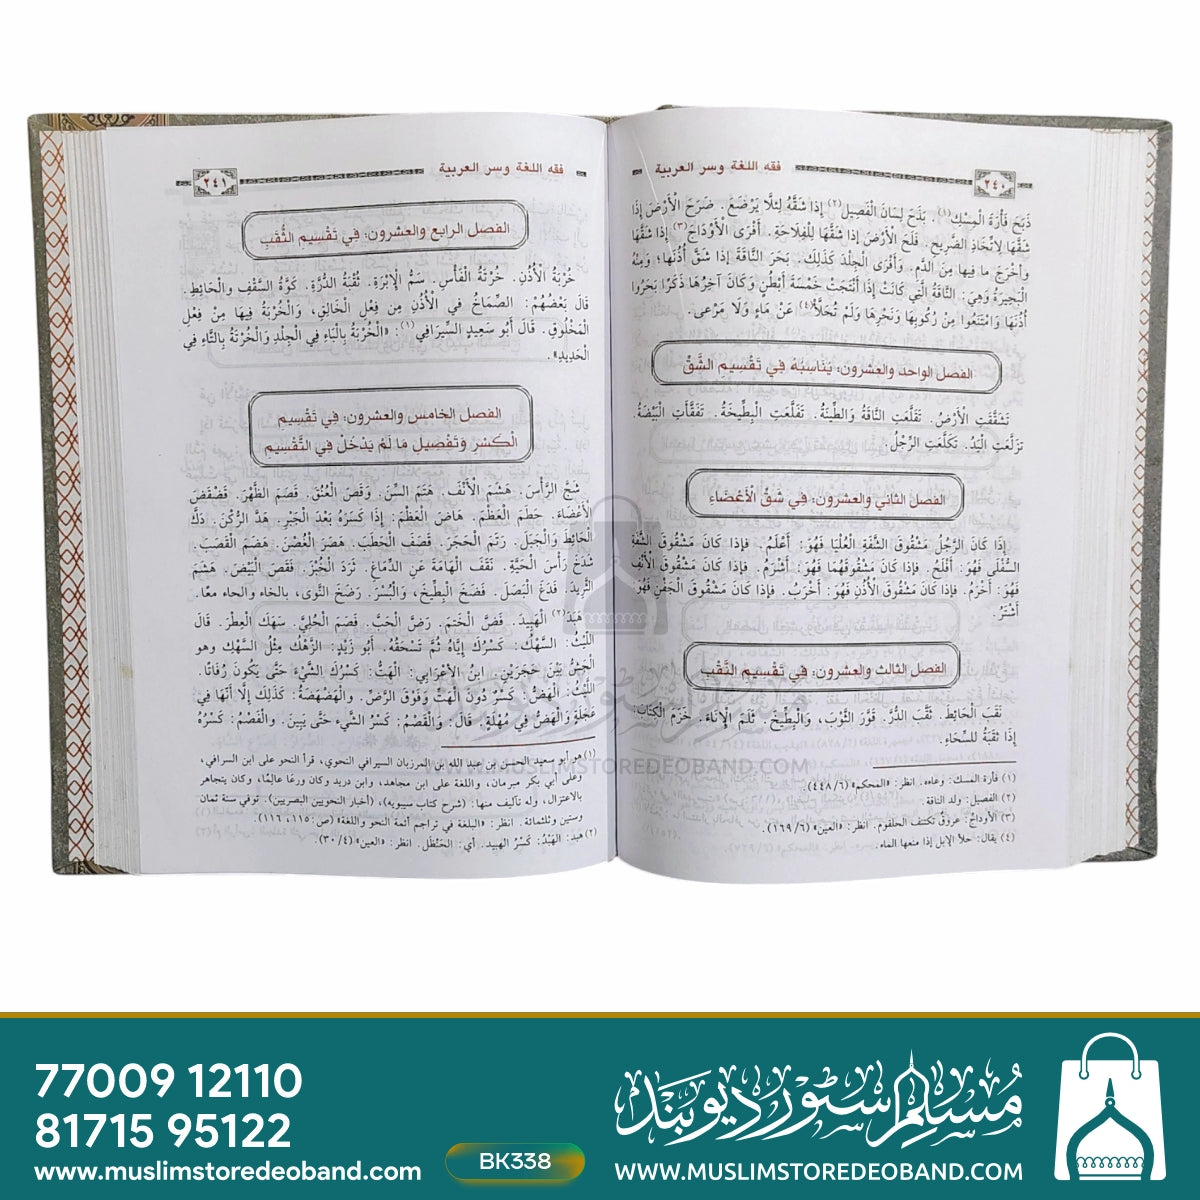 فقه اللغة وسر العربية
٢٤٠
ذَبَحَ فَأْرَةَ الْمِسْكِ(١). بَذَحَ لِسَانَ الْفَصِيلِ(٢) إِذا شَقَّهُ لِئَلَّا يَرْضَعَ. ضَرَحَ الْأَرْضَ إِذَا
شَقَّها لاِتِّخَاذِ الضَّرِيحِ. فَلَحَ الْأَرْضَ إِذا شَقَّها لِلْفِلَاحَةِ. أَفْرَى الْأَوْدَاجَ(٣) إِذا شَقَّها
وأخْرَجَ ما فِيها مِنَ الدَّمِ. وَأَفْرَى الْجِلْدَ كَذَلِكَ. بَحَرَ النَّاقَةَ إِذا شَقَّ أُذُنَها؛ وَمِنْهُ
الْبَحِيرَةُ وَهِيَ: النَّاقَةُ الَّتِي كَانَتْ إِذَا أَنْتَجَتْ خَمْسَةَ أَبْطُنٍ وَكَانَ آخِرُهَا ذَكَرًا بَحَرُوا
أُذُنَهَا وَامْتَنَعُوا مِنْ رُكُوبِهَا وَنَحْرِهَا وَلَمْ تُحَلَّأْ(٤) عَنْ مَاءٍ وَلَا مَرْعى.
الفصل الواحد والعشرون: يُنَاسِبُهُ فِي تَقْسِيمِ الشَّقِّ
تَشَقَّقَتِ الْأَرْضُ. تَفَلَّعَتِ النَّاقَةُ وَالطِّينَةُ. تَفَلَّعَتِ الْبِطِّيخَةُ. تَفَقَّأَتِ الْبَيْضَةُ.
تَزَلَّعَتِ الْيَدُ. تَكَلَّعَتِ الرِّجْلُ.
الفصل الثاني والعشرون: فِي شَقِّ الْأَعْضَاءِ
إِذَا كَانَ الرَّجُلُ مَشْقُوقَ الشَّفَةِ الْعُلْيَا فَهُوَ: أَعْلَمُ. فإذا كَانَ مَشْقُوقَ الشَّفَةِ
السُّفْلَى فَهُوَ: أَفْلَحُ. فإذا كَانَ مَشْقُوقَهُمَا فَهُوَ: أَشْرَمُ. فإذا كَانَ مَشْقُوقَ الْأَنْفِ
فَهُوَ: أَخْرَمُ. فإذا كَانَ مَشْقُوقَ الْأُذُنِ فَهُوَ: أَخْرَبُ. فإذا كَانَ مَشْقُوقَ الْجَفْنِ فَهُوَ:
أَشْتَرُ.
الفصل الثالث والعشرون: فِي تَقْسِيمِ النَّقْبِ
نَقَبَ الْحَائِطَ. ثَقَّبَ الدُّرَّ. قَوَّرَ الثَّوْبَ، وَالْبِطِّيخَ. ثَلَمَ الْإِنَاءَ. خَزَمَ الْكِتَابَ:
إِذَا ثَقَبَهُ لِلسِّحَاءِ.
(١) فأرة المسك: وعاءه. انظر: «المحكم» (٤٤٨/٦).
(٢) الفصيل: ولد الناقة.
(٣) الأوداج: عروق تكتنف الحلقوم. انظر: «العين» (١٦٩/٦).
(٤) يقال: حلأ الإبل إذا منعها الماء.
فقه اللغة وسر العربية
٢٤١
الفصل الرابع والعشرون: فِي تَقْسِيمِ الثُّقَبِ
خُرْبَةُ الْأُذُنِ. خُرْتَةُ الْفَأْسِ. سَمُّ الْإِبْرَةِ. ثُقْبَةُ الدُّرَّةِ. كَوَّةُ السَّقْفِ والْحَائِطِ.
قَالَ بَعْضُهُمْ: الصِّمَاخُ فِي الْأُذُنِ مِن فِعْلِ الْخَالِقِ، وَالْخُرْبَةُ فِيهَا مِنْ فِعْلِ
الْمَخْلُوقِ. قَالَ أَبُو سَعِيدٍ السِّيرَافِي(١): «الْخُرْبَةُ بِالْبَاءِ فِي الْجِلْدِ وَالْخُرْتَةُ بِالتَّاءِ فِي
الْحَدِيدِ».
الفصل الخامس والعشرون: فِي تَقْسِيمِ
الْكَسْرِ وَتَفْصِيلِ مَا لَمْ يَدْخُلْ فِي التَّقْسِيمِ
شَجَّ الرَّأْسَ. هَشَمَ الْأَنْفَ. هَتَمَ السِّنَّ. وَقَصَ الْعُنُقَ. قَصَمَ الظَّهْرَ. قَضْقَضَ
الْأَعْضَاءَ. حَطَمَ الْعَظْمَ. هَاضَ الْعَظْمَ: إِذَا كَسَرَهُ بَعْدَ الْجَبْرِ. هَدَّ الرُّكْنَ. دَكَّ
الْحَائِطَ وَالْجَبَلَ. رَتَمَ الْحَجَرَ. قَصَفَ الْحَطَبَ. هَصَرَ الْغُصْنَ. هَضَمَ الْقَصَبَ.
شَدَخَ رَأْسَ الْحَيَّةِ. نَقَفَ الْهَامَةَ عَنِ الدِّمَاغِ. ثَرَدَ الْخُبْزَ. فَقَصَ الْبَيْضَ. هَشَمَ
الثَّرِيدَ. فَدَغَ الْبَصَلَ. فَضَخَ الْبِطِّيخَ، وَالْبُسْرَ. رَضَخَ النَّوى، بالخاء والحاء معًا.
هَبَدَ(٢) الْهَبِيدَ. فَضَّ الْخَتْمَ. رَضَّ الْحَبَّ. فَصَمَ الْحُلِيَّ. سَهَكَ الْعِطْرَ. قَالَ
اللَّيْثُ: السَّهْكُ: كَسْرُكَ إِيَّاهُ ثُمَّ تَسْحَقُهُ. أَبُو زَيْدٍ: الزَّهْكُ مِثْلُ السَّهْكِ وهو
الْجَشُّ بَيْنَ حَجَرَيْنِ. ابنُ الأعرَابِي: الْهَتُّ: كَسْرُكَ الشَّيْءَ حَتَّى يَكُونَ رُفَاتًا.
اللَّيْثُ: الْهَضُّ: كَسْرٌ دُونَ الْهَتِّ وَفَوْقَ الرَّضِّ. وَالْهَضْهَضَةُ: كَذَلِكَ إِلَّا أَنَّهَا فِي
عَجَلَةٍ وَالْهَضُّ فِي مُهْلَةٍ. قَالَ: وَالْقَصْمُ: كَسْرُ الشَّيْءِ حَتَّى يَبِينَ. وَالْفَصْمُ: كَسْرُهُ
(١) هو أبو سعيد الحسن بن عبد الله بن المرزبان السيرافي النحوي، قرأ النحو على ابن السراقي،
وعلى أبي بكر مبرمان، واللغة على ابن مجاهد، وابن دريد وكان ورعًا عالمًا، وكان يتجاهر
بالاعتزال، وله تآليف منها: (شرح كتاب سيبويه)، (أخبار النحويين البصريين). توفي سنة ثمان
وستين وثلثمائة. انظر: «البلغة في تراجم أئمة النحو واللغة» (ص: ١١٥، ١١٦).
(٢) هبد: الهَبْدُ: كَسْرُ الهبيد. أي: الحَنْظَل. انظر: «العين» (٣٠/٤).
WWW.MUSLIMSTOREDEOBAND.COM
77009 12110
81715 95122
www.muslimstoredeoband.com
BK338
مسلم سٹور دیوبند
WWW.MUSLIMSTOREDEOBAND.COM